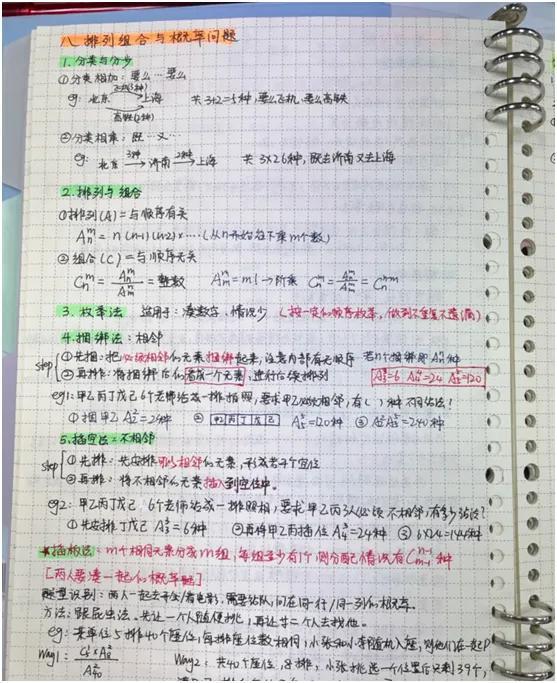 八、排列组合与概率问题
1. 分类与分步
①分类相加：要么…要么
eg: 北京 飞机(3种) 高铁(2种) 上海 共3+2=5种，要么飞机，要么高铁
②分类相乘：既…又…
eg: 北京 3种→ 济南 2种→ 上海 共 3×2 6种，既去济南又去上海
2. 排列与组合
①排列(A)=与顺序有关
Aₙᵐ = n(n-1)(n-2)×…(从n开始往下乘m个数)
②组合(C)=与顺序无关
Cₙᵐ = Aₙᵐ/Aₘᵐ = 整数 Aₘᵐ = m! → 阶乘 Cₙᵐ = Aₙᵐ/Aₘᵐ = Cₙⁿ⁻ᵐ
3. 枚举法 适用于：凑数字，情况少 (按一定的顺序枚举，做到不重复不遗(漏)
4. 捆绑法：相邻
step ①先捆：把必须相邻的元素捆绑起来，注意内部有无顺序 若n个捆绑即Aₙⁿ种
②再排：将捆绑后的看成一个元素，进行后续排列 A₃³=6 A₄⁴=24 A₅⁵=120
eg1: 甲乙丙丁戊己6个老师站成一排拍照，要求甲乙必须相邻，有( )种不同站法？
①捆甲乙 A₂²=2种 ② 甲乙 丙 丁 戊 己 A₅⁵=120种 ③ A₂²A₅⁵=240种
5. 插空法：不相邻
step ①先排：先安排可以相邻的元素，形成若干个空位
②再排：将不相邻的元素插入到空位中。
eg2: 甲乙丙丁戊己，6个老师站成一排照相，要求甲乙丙3人必须不相邻，有多少站法？
①先安排丁戊己 A₃³=6种 ②再将甲乙丙插位 A₄³=24种 ③ 6×24=144种
*插板法：m个相同元素分成n组，每组至少有1个，则分配情况有Cₘ₋₁ⁿ⁻¹种
[两人要凑一起的概率题]
题型识别：两人一起去开会/看电影，需要站队，问在同一行/同一列的概率。
方法：跟屁虫法。先让一个人随便挑，再让第二个人去找他。
eg: 某单位5排40个座位，每排座位数相同，小张和小李随机入座，则他们在一起P
Way1: Way2: 共40个座位，8排，小张挑选一个位置后只剩39个，